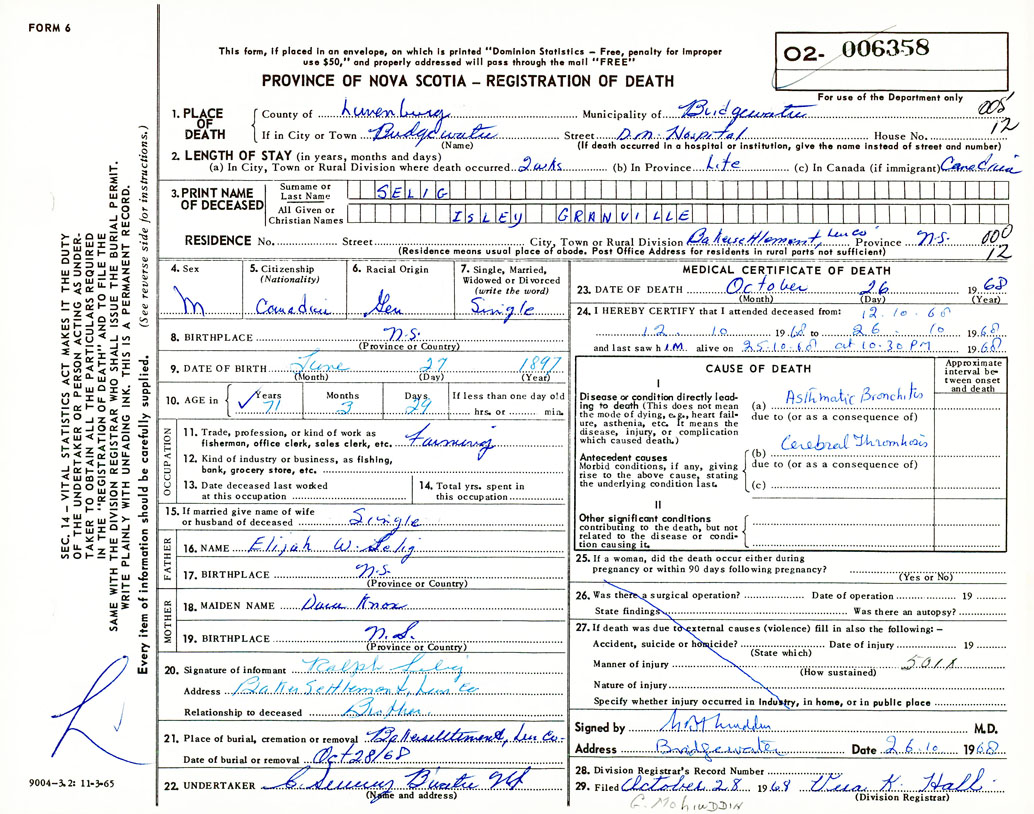 FORM 6
This form, if placed in an envelope, on which is printed "Dominion Statistics – Free, penalty for improper
use $50," and properly addressed will pass through the mail "FREE"
O2- 006358
PROVINCE OF NOVA SCOTIA – REGISTRATION OF DEATH
For use of the Department only
1. PLACE OF DEATH
County of Lunenburg Municipality of Bridgewater 008
If in City or Town Bridgewater Street D.M. Hospital House No. 12
(Name) (If death occurred in a hospital or institution, give the name instead of street and number)
2. LENGTH OF STAY (in years, months and days)
(a) In City, Town or Rural Division where death occurred 2 wks (b) In Province Life (c) In Canada (if immigrant) Canadian
3. PRINT NAME OF DECEASED
Surname or Last Name SELIG
All Given or Christian Names ISLEY GRANVILLE
RESIDENCE No. Street City, Town or Rural Division Bakersettlement, Lun Co Province N.S. 000
(Residence means usual place of abode. Post Office Address for residents in rural parts not sufficient) 12
4. Sex M
5. Citizenship (Nationality) Canadian
6. Racial Origin Ger
7. Single, Married, Widowed or Divorced (write the word) Single
8. BIRTHPLACE N.S.
(Province or Country)
9. DATE OF BIRTH June 27 1897
(Month) (Day) (Year)
10. AGE in Years Months Days If less than one day old
71 3 29 hrs. or min.
OCCUPATION
11. Trade, profession, or kind of work as
fisherman, office clerk, sales clerk, etc. Farming
12. Kind of industry or business, as fishing,
bank, grocery store, etc.
13. Date deceased last worked
at this occupation
14. Total yrs. spent in
this occupation
15. If married give name of wife
or husband of deceased Single
FATHER
16. NAME Elijah W. Selig
17. BIRTHPLACE N.S.
(Province or Country)
MOTHER
18. MAIDEN NAME Knox
19. BIRTHPLACE N.S.
(Province or Country)
20. Signature of informant Ralph Selig
Address Baker Settlement, Lun Co
Relationship to deceased Brother.
21. Place of burial, cremation or removal Bakersettlement, Lun Co.
Date of burial or removal Oct 28/68
22. UNDERTAKER
(Name and address)
MEDICAL CERTIFICATE OF DEATH
23. DATE OF DEATH October 26 1968
(Month) (Day) (Year)
24. I HEREBY CERTIFY that I attended deceased from: 12.10.68
12. 10 1968 to 26. 10 1968
and last saw h I.M. alive on 25.10.68 at 10.30 PM 1968
CAUSE OF DEATH
Approximate interval between onset and death
I
Disease or condition directly leading
to death (This does not mean
the mode of dying, e.g., heart failure,
asthenia, etc. It means the
disease, injury, or complication
which caused death.)
(a) Asthmatic Bronchitis
due to (or as a consequence of)
Antecedent causes
Morbid conditions, if any, giving
rise to the above cause, stating
the underlying condition last.
(b) Cerebral Thrombosis
due to (or as a consequence of)
(c)
II
Other significant conditions
contributing to the death, but not
related to the disease or condition
causing it.
25. If a woman, did the death occur either during
pregnancy or within 90 days following pregnancy?
(Yes or No)
26. Was there a surgical operation? Date of operation 19
State findings Was there an autopsy?
27. If death was due to external causes (violence) fill in also the following: –
Accident, suicide or homicide? Date of injury 19
(State which)
Manner of injury 501X
(How sustained)
Nature of injury
Specify whether injury occurred in Industry, in home, or in public place
Signed by M.D.
Address Bridgewater Date 26.10 1968
28. Division Registrar's Record Number
29. Filed October 28 1968 Vera K. Hall
(Division Registrar)
G. MOHIUDDIN
SEC. 14 – VITAL STATISTICS ACT MAKES IT THE DUTY
OF THE UNDERTAKER OR PERSON ACTING AS UNDERTAKER
TO OBTAIN ALL THE PARTICULARS REQUIRED
IN THE "REGISTRATION OF DEATH" AND TO FILE THE
SAME WITH THE DIVISION REGISTRAR WHO SHALL ISSUE THE BURIAL PERMIT.
WRITE PLAINLY WITH UNFADING INK. THIS IS A PERMANENT RECORD.
Every item of information should be carefully supplied. (See reverse side for instructions.)
9004–3.2: 11-3-65